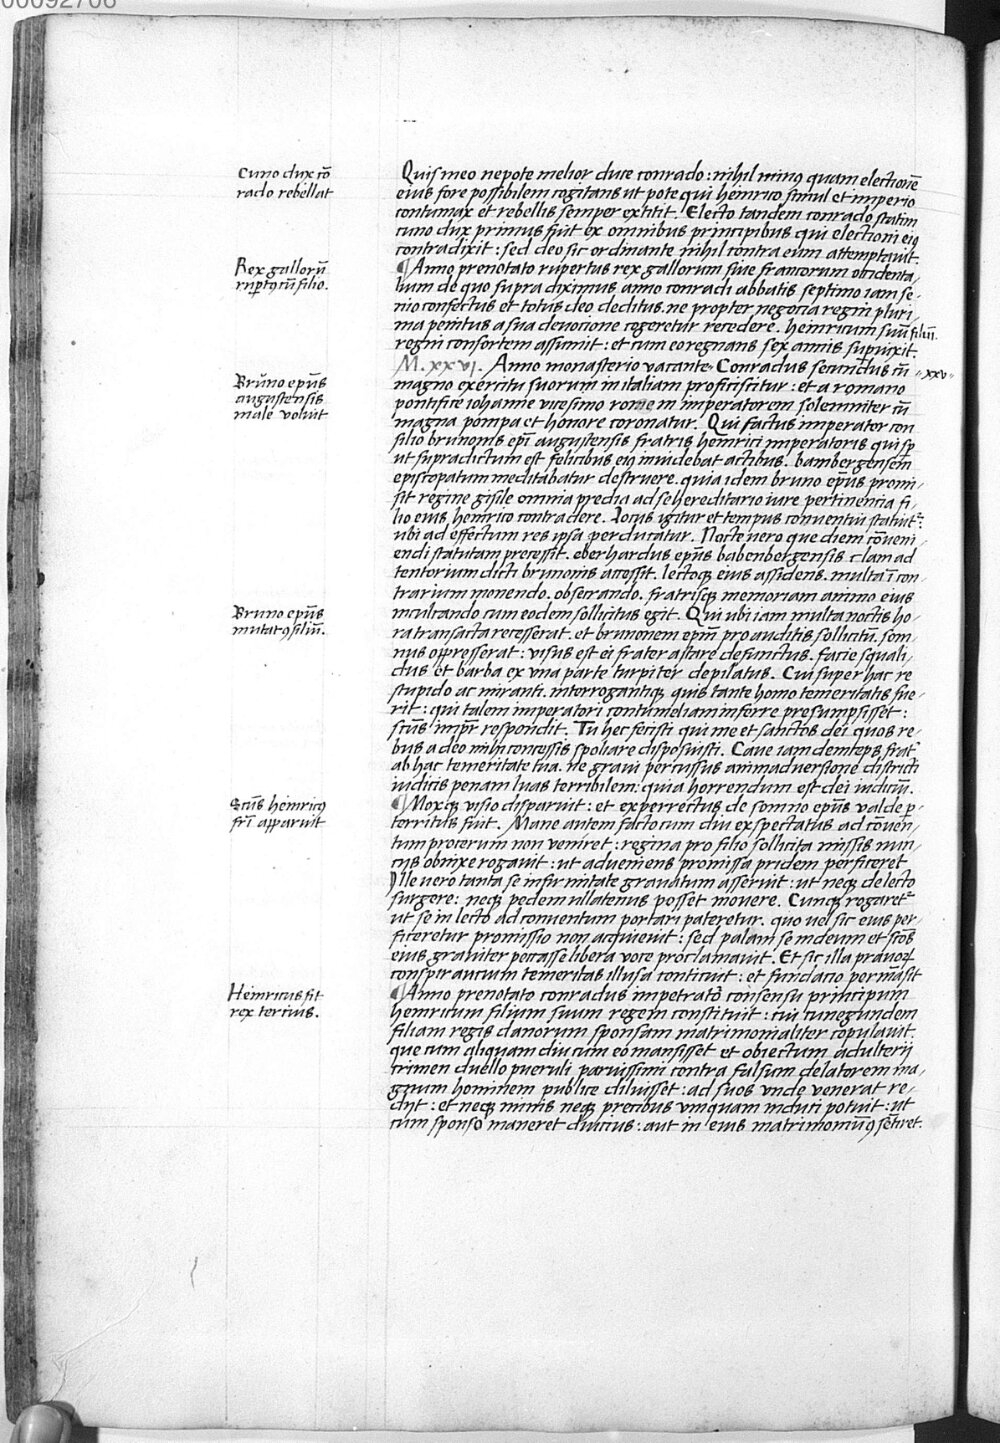 00092706
Cuno dux cō
rado rebellat
Quis meo nepote melior duce conrado : nihil minꝰ quam electionē
eius fore possibilem cogitans ut pote qui heinrico simul et imperio
contumax et rebellis semper extitit. Electo tandem conrado statim
cuno dux primus fuit ex omnibus principibus qui electioni eiꝰ
contradixit : sed deo sic ordinante nihil contra eum attemptauit.
Rex gallorū
ruptꝰ cū filio.
¶ Anno prenotato rupertus rex gallorum siue francorum occidenta/
lium de quo supra diximus anno conradi abbatis septimo iam se/
nio confectus et totus deo deditus. ne propter negocia regni pluri/
ma penitus a sua deuocione cogeretur recedere. heinricum suū filiū.
regni consortem assumit : et cum eo regnans sex annis supuixit.
M. xxvi. Anno monasterio vacante. Conradus secundus cū "xxv"
Brūno epūs
augustensis
male voluit
magno exercitu suorum in italiam proficiscitur : et a romano
pontifice iohanne vicesimo rome in imperatorem solemniter cū
magna pompa et honore coronatur. Qui factus imperator con
silio brunonis epī augustensis fratris heinrici imperatoris qui sp̄
ut supradictum est felicibus eiꝰ inuidebat actibus. bambergensem
episcopatum meditabatur destruere. quia idem bruno epūs promi/
sit regine gisile omnia predia ad se hereditario iure pertinencia fi/
lio eius heinrico contradere. Locus igitur et tempus conuentui statuit᷑ :
ubi ad effectum res ipsa perducatur. Nocte uero que diem cōueni/
endi statutam precessit. eberhardus epūs babenbergensis clam ad
tentorium dicti brunonis accessit. lectoqꝫ eius assidens. multa ī con/
trarium monendo. obsecrando. fratrisqꝫ memoriam animo eius
Bruno epūs
mutat ꝯsiliū.
inculcando cum eodem sollicitus egit. Qui ubi iam multa noctis ho/
ra transacta recesserat. et brunonem epm̄ pro auditis sollicitū. som/
nus oppresserat : visus est ei frater astare defunctus. facie squali/
dus et barba ex vna parte turpiter depilatus. Cui super hac re
stupido ac miranti. interrogantiqꝫ quis tante homo temeritatis fue/
rit : qui talem imperatori contumeliam inferre presumpsisset :
scūs impr̄ respondit. Tu hec fecisti qui me et sanctos dei quos re/
bus a deo mihi concessis spoliare disposuisti. Caue iam deinceps frat᷑
ab hac temeritate tua. ne graui percussus animaduersione districti
iudicis penam luas terribilem: quia horrendum est dei iudiciū.
Scūs heinricꝰ
fr̄i apparuit
¶ Moxqꝫ visio disparuit : et experrectus de somno epūs valde p̱/
territus fuit. Mane autem facto cum diu exspectatus ad cōuen/
tum procerum non veniret : regina pro filio sollicita missis nun/
cijs obnixe rogauit : ut adueniens promissa pridem perficeret
Ille uero tanta se infirmitate grauatum asseruit : ut neqꝫ de lecto
surgere : neqꝫ pedem ullatenus posset mouere. Cunqꝫ rogaret᷑
ut se in lecto ad conuentum portari pateretur. quo uel sic eius per/
ficeretur promissio non acquieuit : sed palam se in deum et scōs
eius grauiter peccasse libera voce proclamauit. Et sic illa prauoꝝ
conspirancium temeritas illusa conticuit : et fundacio permāsit
Heinricus fit
rex tercius.
¶ Anno prenotato conradus impetrato consensu principum
heinricum filium suum regem constituit : cui cunegundem
filiam regis danorum sponsam matrimonialiter copulauit.
que cum aliquam diu cum eo mansisset et obiectum adulterij
crimen duello pueruli paruissimi contra falsum delatorem ma/
gnum hominem publice diluisset : ad suos vnde venerat re/
dijt : et neqꝫ minis neqꝫ precibus vnquam induci potuit : ut
cum sponso maneret diucius : aut in eius matrimoniū ꝯsētiret.